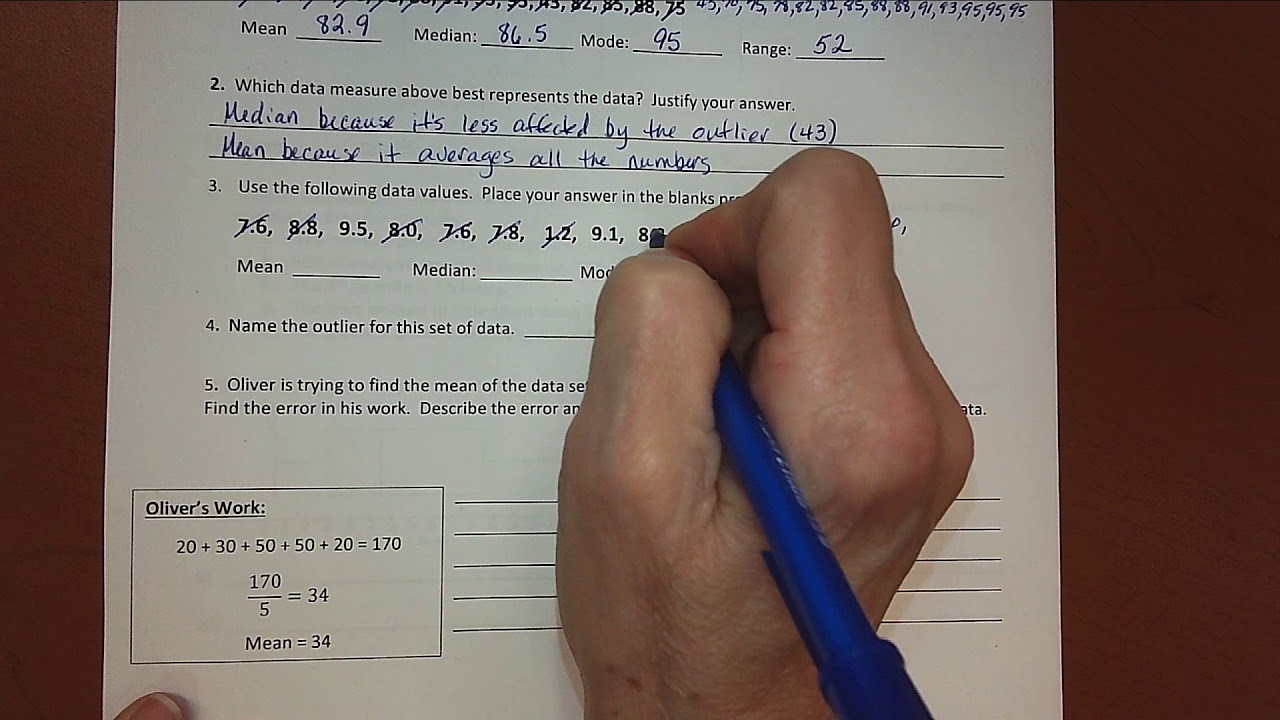 82, 85, 88, 75 43, 70, 75, 78, 82, 82, 85, 88, 88, 91, 93, 95, 95, 95
Mean 82.9 Median: 86.5 Mode: 95 Range: 52
2. Which data measure above best represents the data? Justify your answer.
Median because it's less affected by the outlier (43)
Mean because it averages all the numbers
3. Use the following data values. Place your answer in the blanks
7.6, 8.8, 9.5, 8.0, 7.6, 7.8, 1.2, 9.1, 8
Mean Median:
4. Name the outlier for this set of data.
5. Oliver is trying to find the mean of the data
Find the error in his work. Describe the error
Oliver's Work:
20 + 30 + 50 + 50 + 20 = 170
170
5 = 34
Mean = 34